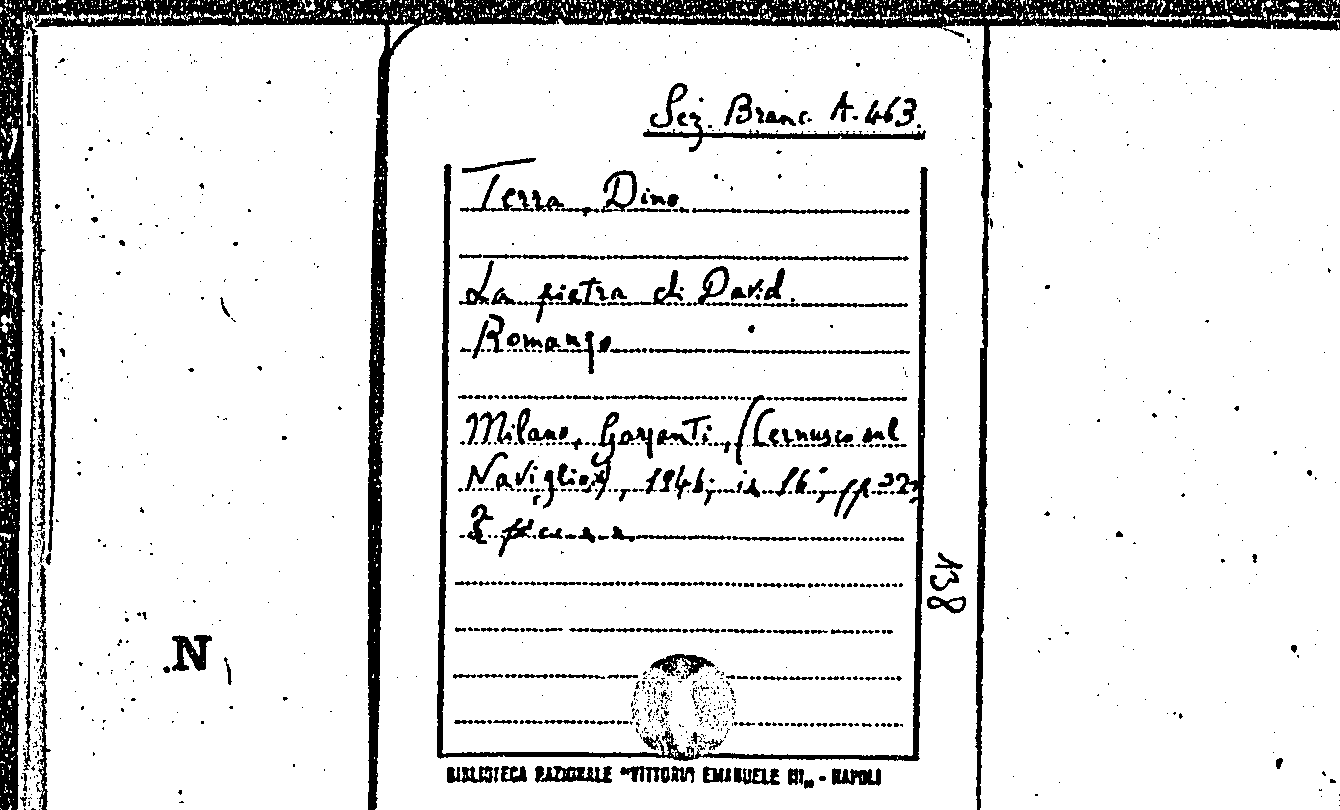 Sez. Branc. A. 463.
Terra, Dino
La pietra di David.
Romanzo
Milano, Garzanti, (Cernusco sul
Naviglio), 1946; in 16°, pp.
2
138
.N
BIBLIOTECA NAZIONALE "VITTORIO EMANUELE III„ - NAPOLI